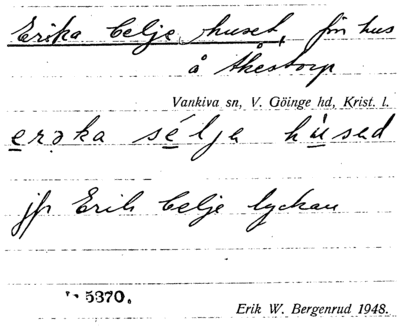 Erika Celje huset, förr hus
å Åkestorp
Vankiva sn, V. Göinge hd, Krist. l.
erəka sélje hùsed
jfr Erik Celje lyckan
5370.
Erik W. Bergenrud 1948.